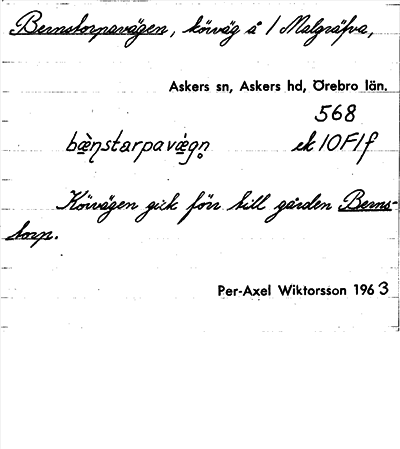 Bernstorpavägen, körväg å 1 Malgräfva,
Askers sn, Askers hd, Örebro län.
568
bæ̀ṇstarpavæ̣gn̥ ek 10F1f
Körvägen gick förr till gården Berns-
torp.
Per-Axel Wiktorsson 1963